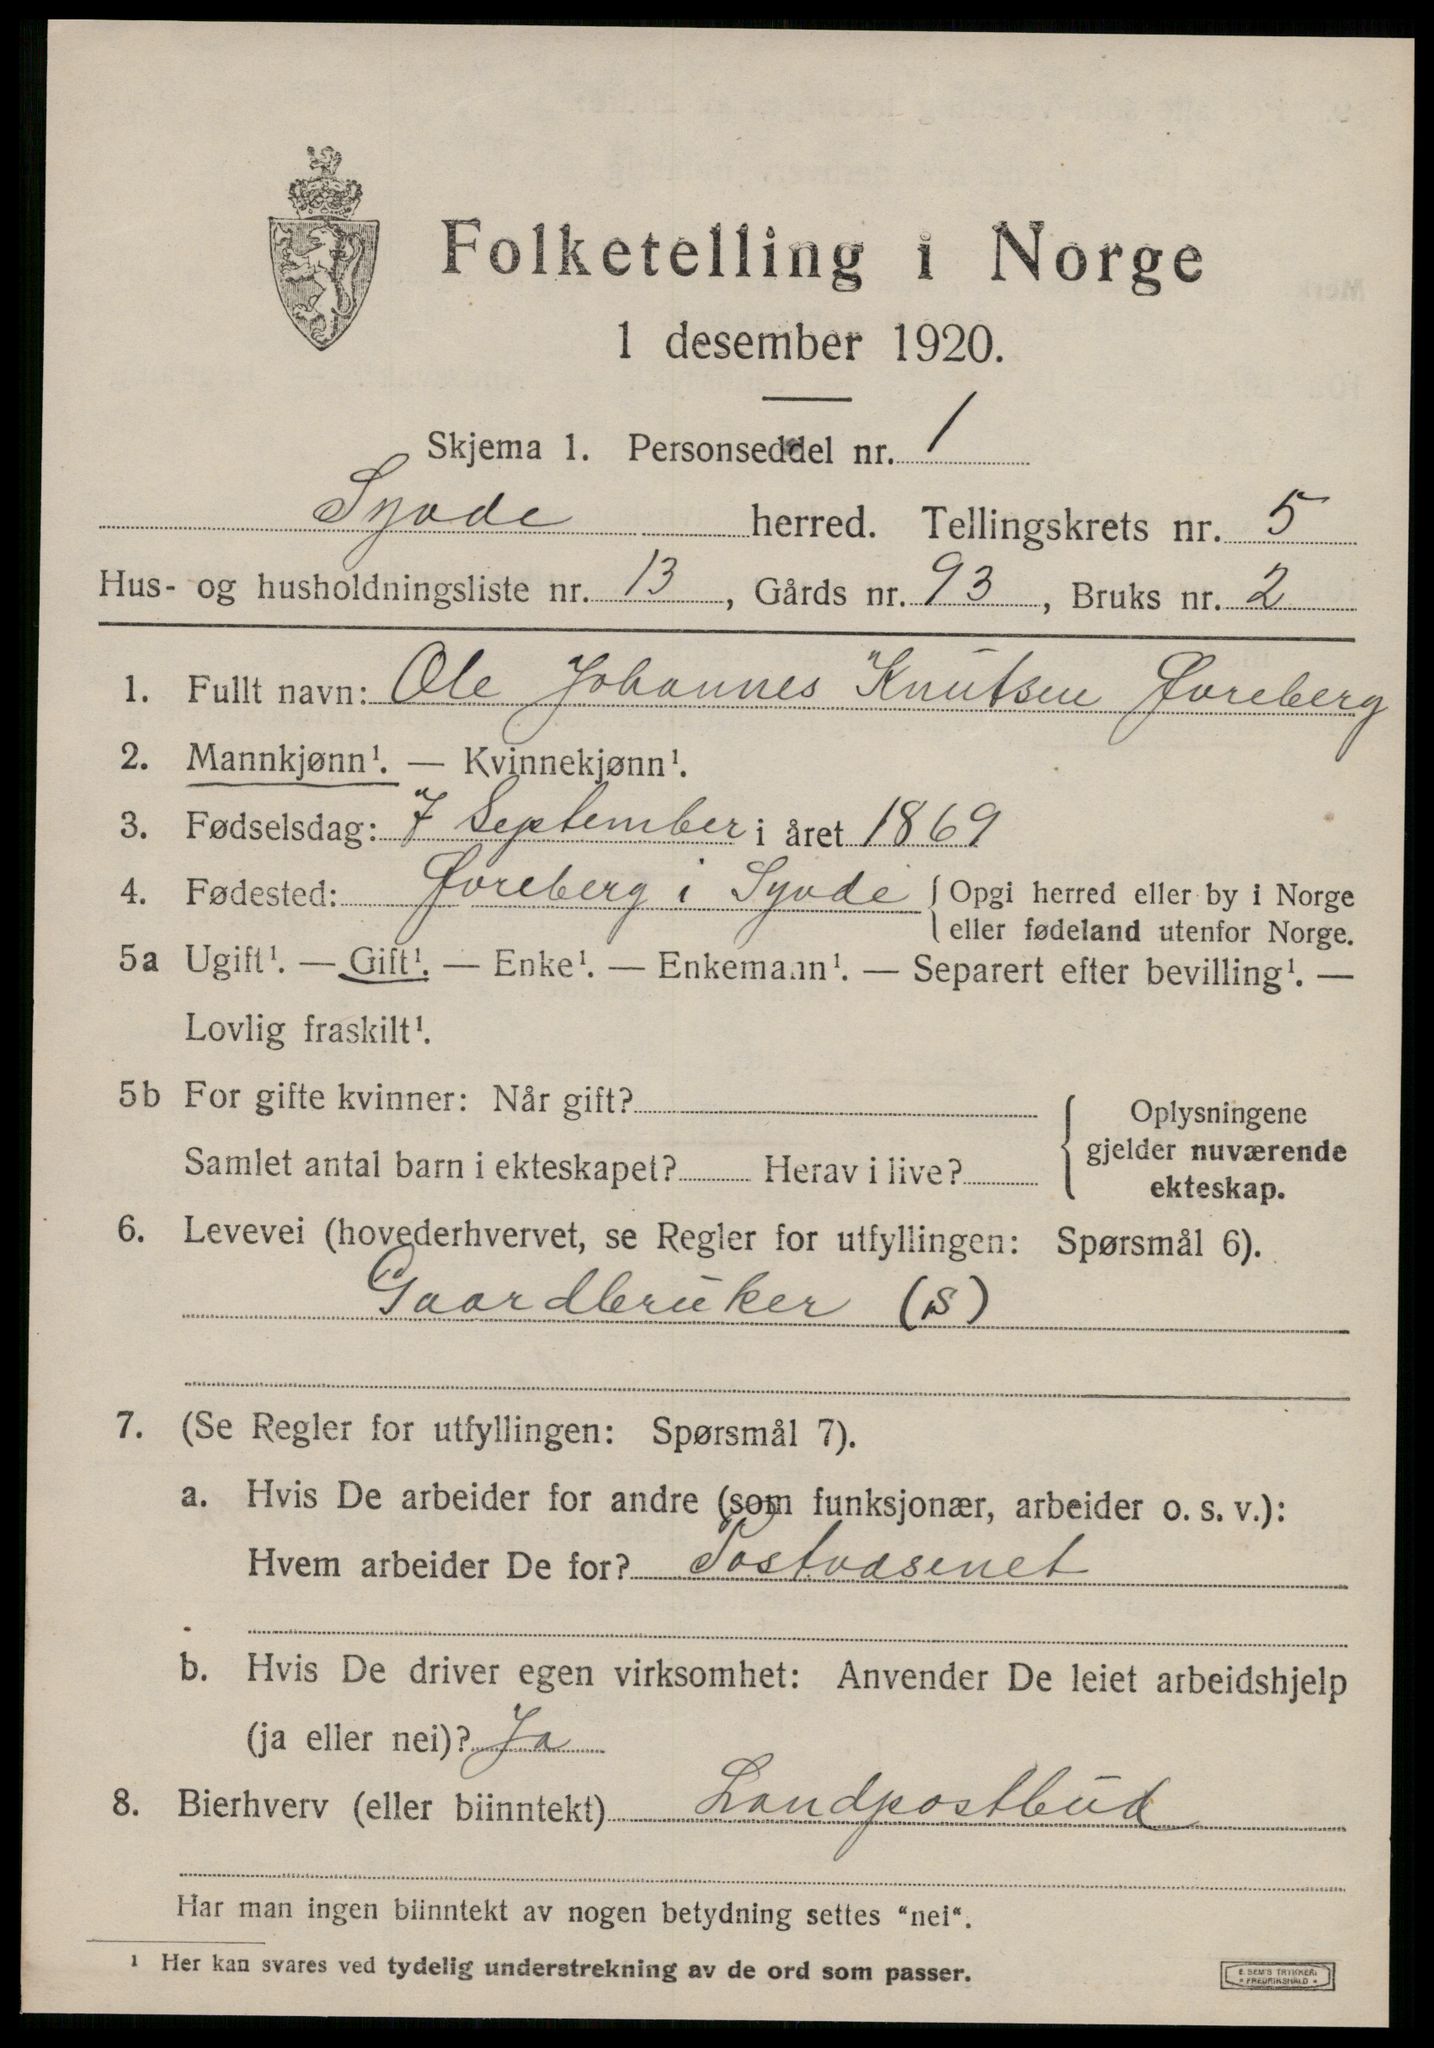 Folketelling i Norge
1 desember 1920.
Skjema 1. Personseddel nr. 1
Syvde herred. Tellingskrets nr. 5
Hus- og husholdningsliste nr. 13, Gårds nr. 93, Bruks nr. 2
1. Fullt navn: Ole Johannes Knutsen Øvreberg
2. Mannkjønn¹. — Kvinnekjønn¹.
3. Fødselsdag: 7 September i året 1869
4. Fødested: Øvreberg i Syvde { Opgi herred eller by i Norge
eller fødeland utenfor Norge.
5a Ugift¹. — Gift¹. — Enke¹. — Enkemann¹. — Separert efter bevilling¹. —
Lovlig fraskilt¹.
5b For gifte kvinner: Når gift?
Samlet antal barn i ekteskapet? Herav i live?
Oplysningene
gjelder nuværende
ekteskap.
6. Levevei (hovederhvervet, se Regler for utfyllingen: Spørsmål 6).
Gaardbruker (s)
7. (Se Regler for utfyllingen: Spørsmål 7).
a. Hvis De arbeider for andre (som funksjonær, arbeider o. s. v.):
Hvem arbeider De for? Postvæsenet
b. Hvis De driver egen virksomhet: Anvender De leiet arbeidshjelp
(ja eller nei)? Ja
8. Bierhverv (eller biinntekt) Landpostbud
Har man ingen biinntekt av nogen betydning settes "nei".
¹ Her kan svares ved tydelig understrekning av de ord som passer.
E. SEM'S TRYKKERI
* FREDRIKSHALD *